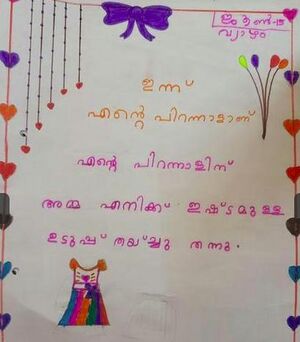 ജൂൺ-15
വ്യാഴം
ഇന്ന്
എൻ്റെ പിറന്നാളാണ്
എൻ്റെ പിറന്നാളിന്
അമ്മ എനിക്ക് ഇഷ്ടമുള്ള
ഉടുപ്പ് തയ്ച്ചു തന്നു.